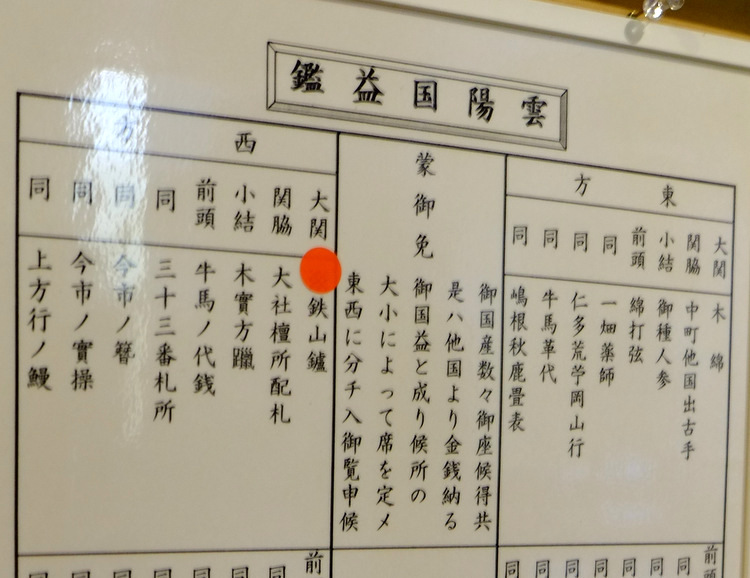 雲陽国益鑑
東方
大関 木綿
関脇 中町他国出古手
小結 御種人参
前頭 綿打弦
同 一畑薬師
同 仁多荒苧岡山行
同 牛馬革代
同 嶋根秋鹿畳表
蒙御免
御国産数々御座候得共
是ハ他国より金銭納る
御国益と成り候所の
大小によって席を定メ
東西に分チ入御覧申候
西方
大関 鉄山鑪
関脇 大社檀所配札
小結 木實方蠟
前頭 牛馬ノ代銭
同 三十三番札所
同 今市ノ簪
同 今市ノ實操
同 上方行ノ鰻
前頭
同
同
同
同
同
同
同
前
同
同
同
同
同
同
同